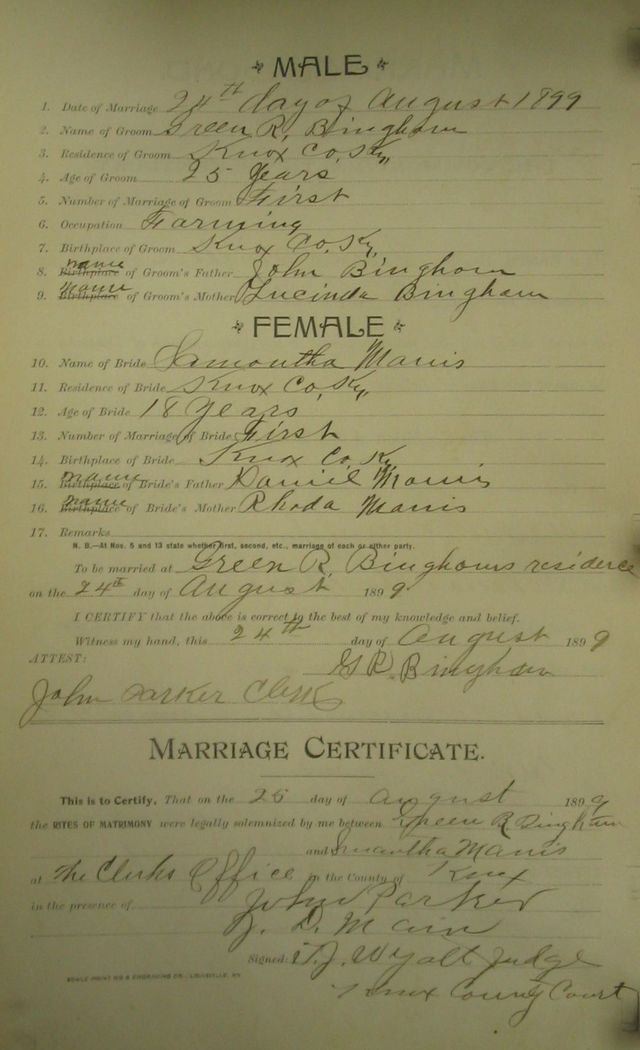 MALE
1. Date of Marriage 24th day of August 1899
2. Name of Groom Green R. Bingham
3. Residence of Groom Knox Co, Ky,
4. Age of Groom 25 Years
5. Number of Marriage of Groom First
6. Occupation Farming
7. Birthplace of Groom Knox Co, Ky,
8. Birthplace name of Groom's Father John Bingham
9. Birthplace name of Groom's Mother Lucinda Bingham
FEMALE
10. Name of Bride Samantha
11. Residence of Bride Knox Co, Ky,
12. Age of Bride 18 Years
13. Number of Marriage of Bride First
14. Birthplace of Bride Knox Co, Ky
15. Birthplace name of Bride's Father Daniel
16. Birthplace name of Bride's Mother Rhoda
17. Remarks
N. B.—At Nos. 5 and 13 state whether first, second, etc., marriage of each or either party.
To be married at Green R. Binghams residence
on the 24th day of August 1899
I CERTIFY that the above is correct to the best of my knowledge and belief.
Witness my hand, this 24th day of August 1899
ATTEST: G R. Bingham
John Parker Clerk
MARRIAGE CERTIFICATE.
This is to Certify, That on the 25 day of August 1899
the RITES OF MATRIMONY were legally solemnized by me between Green R. Bingham
and Smantha
at The Clerks Office in the County of Knox
in the presence of John Parker
D. Main
Signed: T. J. Wyatt Judge
Knox County Court